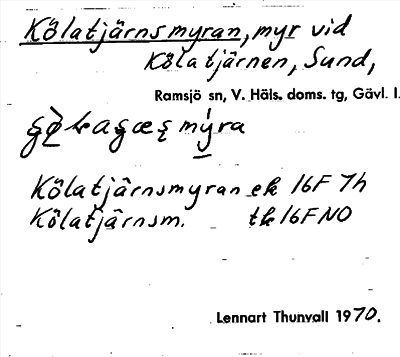 Kölatjärnsmyran, myr vid
Kölatjärnen, Sund,
Ramsjö sn, V. Häls. doms. tg, Gävl. l.
myra
Kölatjärnsmyran ek 16F 7h
Kölatjärnsm. tk 16F NO
Lennart Thunvall 1970.